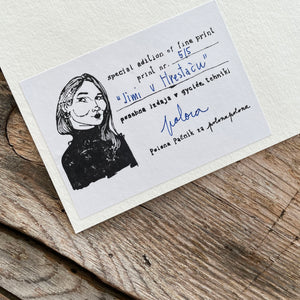 special edition of fine print
print nr. 5/5
"Jimi v Hrestaču"
posebna izdaja v gyclée tehniki
polona
Polona Pačnik za polonapolona.